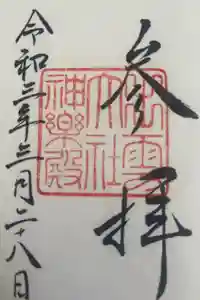 参拝
出雲
大社
神楽殿
令和三年三月二十八日